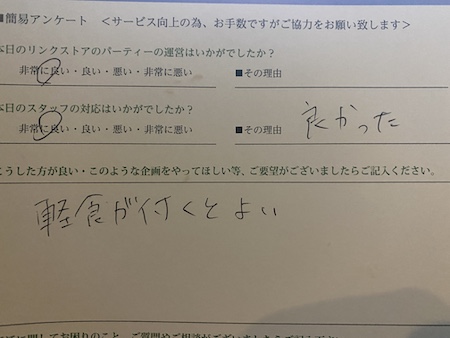 ■簡易アンケート ＜サービス向上の為、お手数ですがご協力をお願い致します＞
本日のリンクストアのパーティーの運営はいかがでしたか？
非常に良い・良い・悪い・非常に悪い ■その理由
本日のスタッフの対応はいかがでしたか？
非常に良い・良い・悪い・非常に悪い ■その理由 良かった
こうした方が良い・このような企画をやってほしい等、ご要望がございましたらご記入ください。
軽食が付くとよい
に関してお困りのこと、ご質問やご相談がございましたらご記入下さい